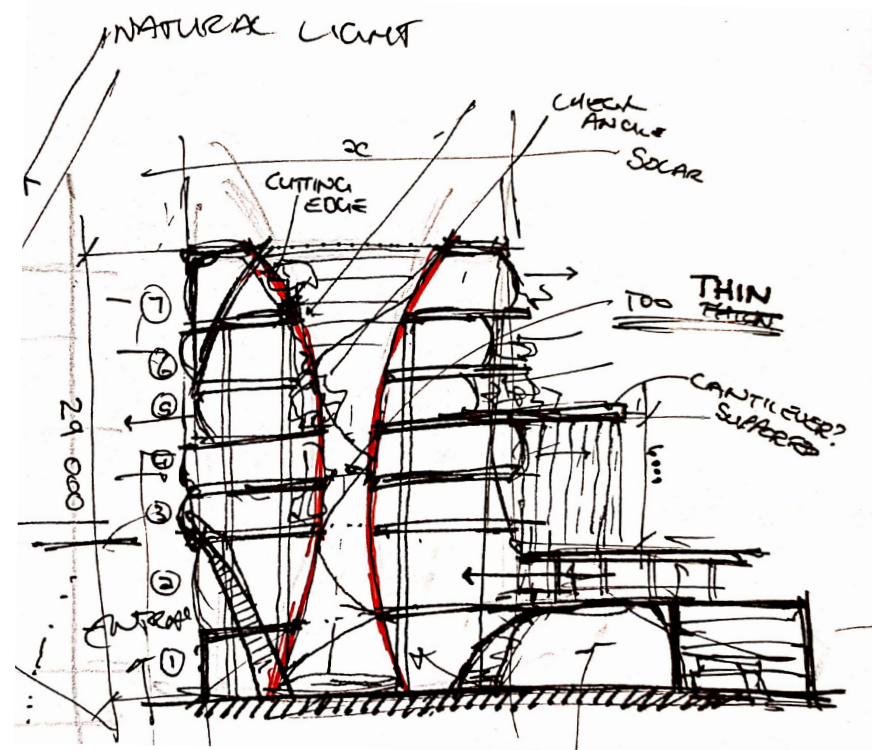 NATURAL LIGHT
CHECK
ANGLE
SOLAR
x
CUTTING
EDGE
TOO THIN
CANTILEVER?
SUPPORTED
7
6
5
4
3
2
1
29 000
6000